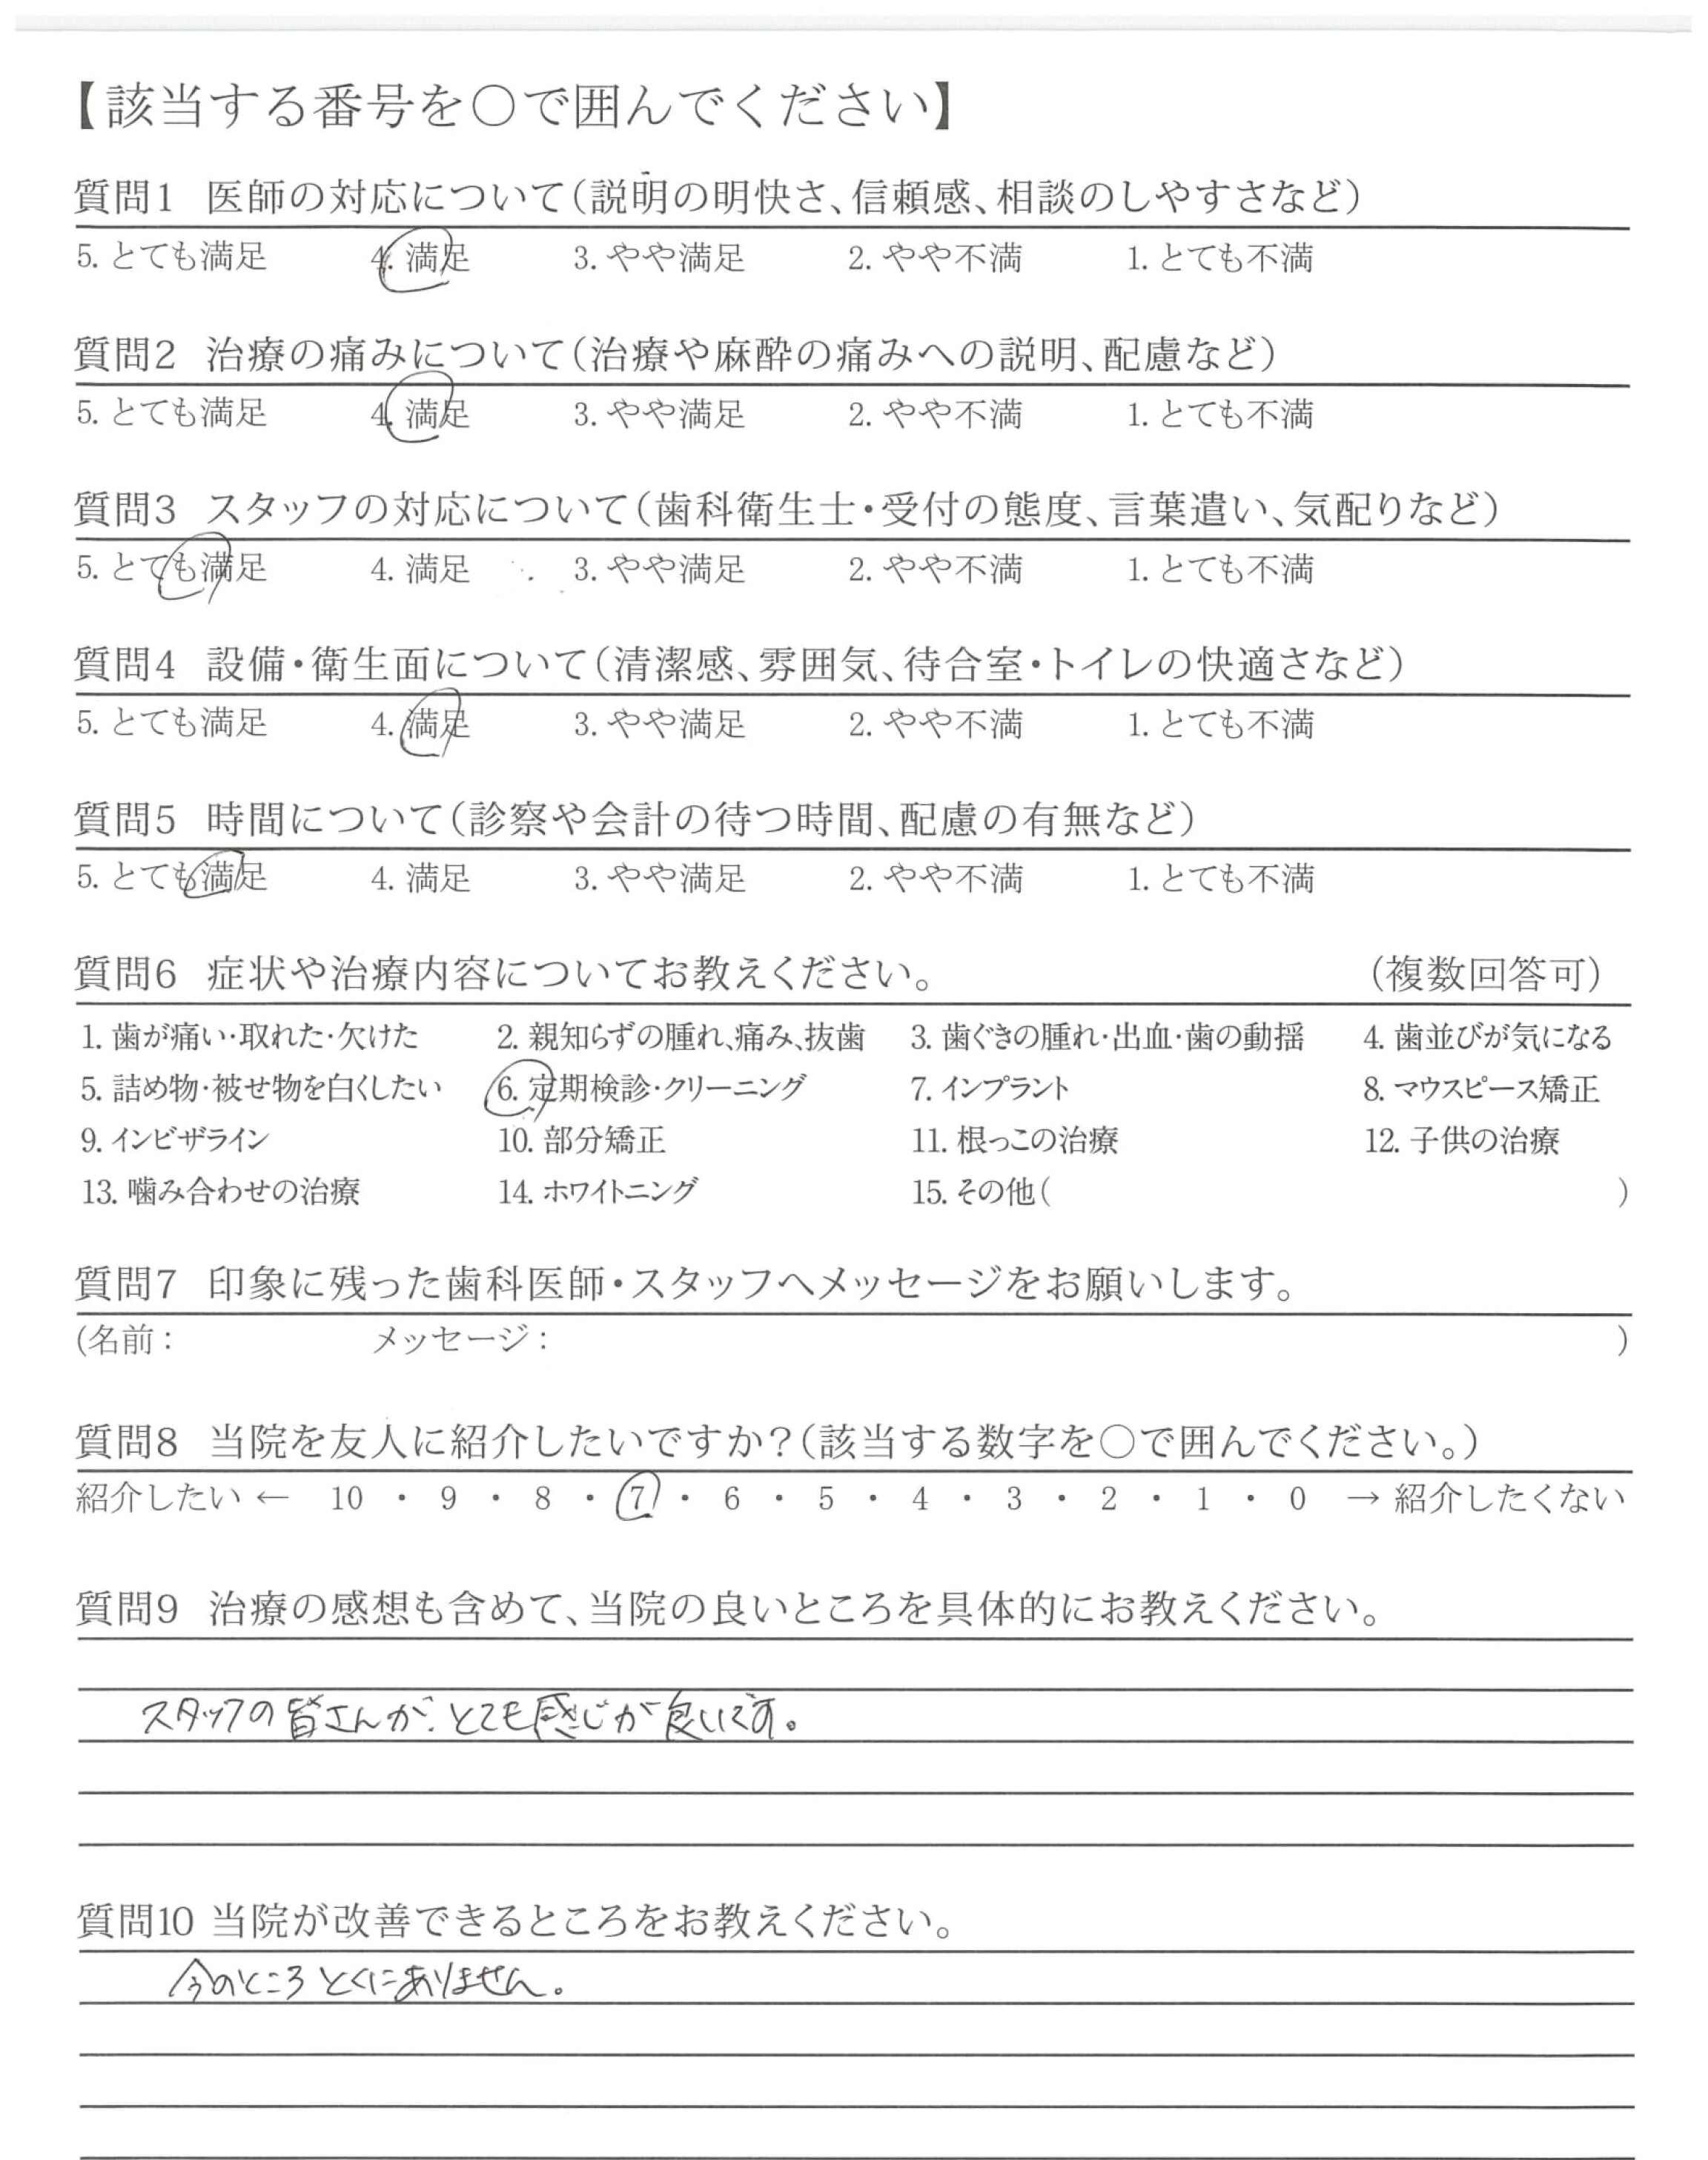 【該当する番号を○で囲んでください】
質問1 医師の対応について(説明の明快さ、信頼感、相談のしやすさなど)
5. とても満足 4. 満足 3. やや満足 2. やや不満 1. とても不満
質問2 治療の痛みについて(治療や麻酔の痛みへの説明、配慮など)
5. とても満足 4. 満足 3. やや満足 2. やや不満 1. とても不満
質問3 スタッフの対応について(歯科衛生士・受付の態度、言葉遣い、気配りなど)
5. とても満足 4. 満足 3. やや満足 2. やや不満 1. とても不満
質問4 設備・衛生面について(清潔感、雰囲気、待合室・トイレの快適さなど)
5. とても満足 4. 満足 3. やや満足 2. やや不満 1. とても不満
質問5 時間について(診察や会計の待つ時間、配慮の有無など)
5. とても満足 4. 満足 3. やや満足 2. やや不満 1. とても不満
質問6 症状や治療内容についてお教えください。 (複数回答可)
1. 歯が痛い・取れた・欠けた 2. 親知らずの腫れ、痛み、抜歯 3. 歯ぐきの腫れ・出血・歯の動揺 4. 歯並びが気になる
5. 詰め物・被せ物を白くしたい 6. 定期検診・クリーニング 7. インプラント 8. マウスピース矯正
9. インビザライン 10. 部分矯正 11. 根っこの治療 12. 子供の治療
13. 噛み合わせの治療 14. ホワイトニング 15. その他( )
質問7 印象に残った歯科医師・スタッフへメッセージをお願いします。
(名前: メッセージ: )
質問8 当院を友人に紹介したいですか?(該当する数字を○で囲んでください。)
紹介したい ← 10 ・ 9 ・ 8 ・ 7 ・ 6 ・ 5 ・ 4 ・ 3 ・ 2 ・ 1 ・ 0 → 紹介したくない
質問9 治療の感想も含めて、当院の良いところを具体的にお教えください。
スタッフの皆さんが、とても感じが良いです。
質問10 当院が改善できるところをお教えください。
今のところとくにありません。